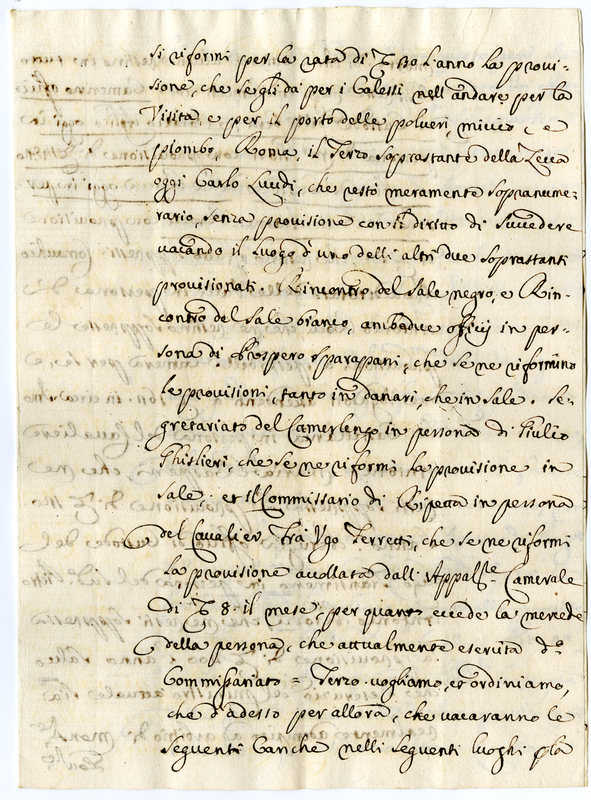 si riformi per la rata di ∇ 130 l'anno la provi-
sione, che se gli dà per i Calessi nell'andare per la
Visita, e per il porto delle polveri, miccio, e
piombo, Roma, il Terzo soprastante della Zecca
oggi Carlo Luidi, che restò meramente sopranume-
rario, senza provisione con il diritto di succedere
vacando il luogo d'uno delli altri due soprastanti
provisionati. Rincontro del sale negro, e Rin-
contro del sale bianco, ambedue offitij in per-
sona di Prospero Sparapani, che se ne riformino
le provisioni, tanto in danari, che in sale. Se-
gretariato del Camerlengo in persona di Giulio
Ghislieri, che se ne riformi la provisione in
sale; et Il Commissario di Ripetta in persona
del Cavalier Fra Ugo Terretti, che se ne riformi
la provisione accollata dall'Appal.re Camerale
di ∇ 8 il mese, per quanto eccede la mercede
della persona, che attualmente esercita d.o
Commissariato = Terzo vogliamo, et ordiniamo,
che d'adesso per allora, che vacaranno le
seguenti Cariche nelli seguenti luoghi p la